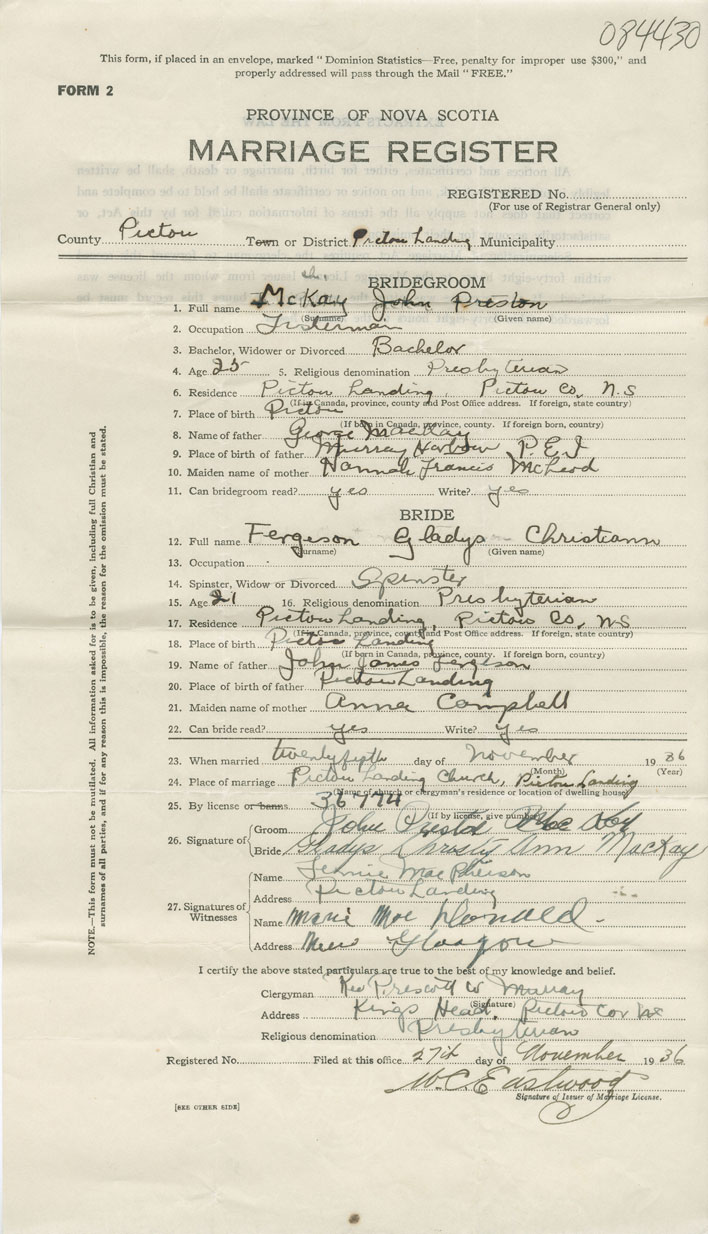 084430
This form, if placed in an envelope, marked "Dominion Statistics—Free, penalty for improper use $300," and
properly addressed will pass through the Mail "FREE."
FORM 2
PROVINCE OF NOVA SCOTIA
MARRIAGE REGISTER
REGISTERED No.
(For use of Registrar General only)
County Pictou Town or District Pictou Landing Municipality
BRIDEGROOM
1. Full name McKay John Preston
(Surname) (Given name)
2. Occupation Fisherman
3. Bachelor, Widower or Divorced Bachelor
4. Age 25 5. Religious denomination Presbyterian
6. Residence Pictou Landing, Pictou Co, N.S
(If in Canada, province, county and Post Office address. If foreign, state country)
7. Place of birth Pictou
(If born in Canada, province, county. If foreign born, country)
8. Name of father George MacKay
9. Place of birth of father Murray Harbour P.E.I
10. Maiden name of mother Hannah Francis McLeod
11. Can bridegroom read? yes Write? yes
BRIDE
12. Full name Fergeson Gladys Christiann
(Surname) (Given name)
13. Occupation
14. Spinster, Widow or Divorced Spinster
15. Age 21 16. Religious denomination Presbyterian
17. Residence Pictou Landing, Pictou Co, NS
(If in Canada, province, county and Post Office address. If foreign, state country)
18. Place of birth Pictou Landing
(If born in Canada, province, county. If foreign born, country)
19. Name of father John James Fergeson
20. Place of birth of father Pictou Landing
21. Maiden name of mother Anna Campbell
22. Can bride read? yes Write? yes
23. When married twenty fifth day of November 1936
(Month) (Year)
24. Place of marriage Pictou Landing Church, Pictou Landing
(Name of church or clergyman's residence or location of dwelling house)
25. By license or banns 36774
(If by license, give number)
26. Signature of
Groom John Preston Mac Kay
Bride Gladys Christy Ann MacKay
27. Signatures of Witnesses
Name Jennie MacPherson
Address Pictou Landing
Name Marie Mac Donald
Address New Glasgow
I certify the above stated particulars are true to the best of my knowledge and belief.
Clergyman Rev Prescott W Murray
(Signature)
Address Kings Head, Pictou Co NS
Religious denomination Presbyterian
Registered No. Filed at this office 27th day of November 1936
W.C. Eastwood
Signature of Issuer of Marriage License.
[SEE OTHER SIDE]
NOTE.—This form must not be mutilated. All information asked for is to be given, including full Christian and
surnames of all parties, and if for any reason this is impossible, the reason for the omission must be stated.